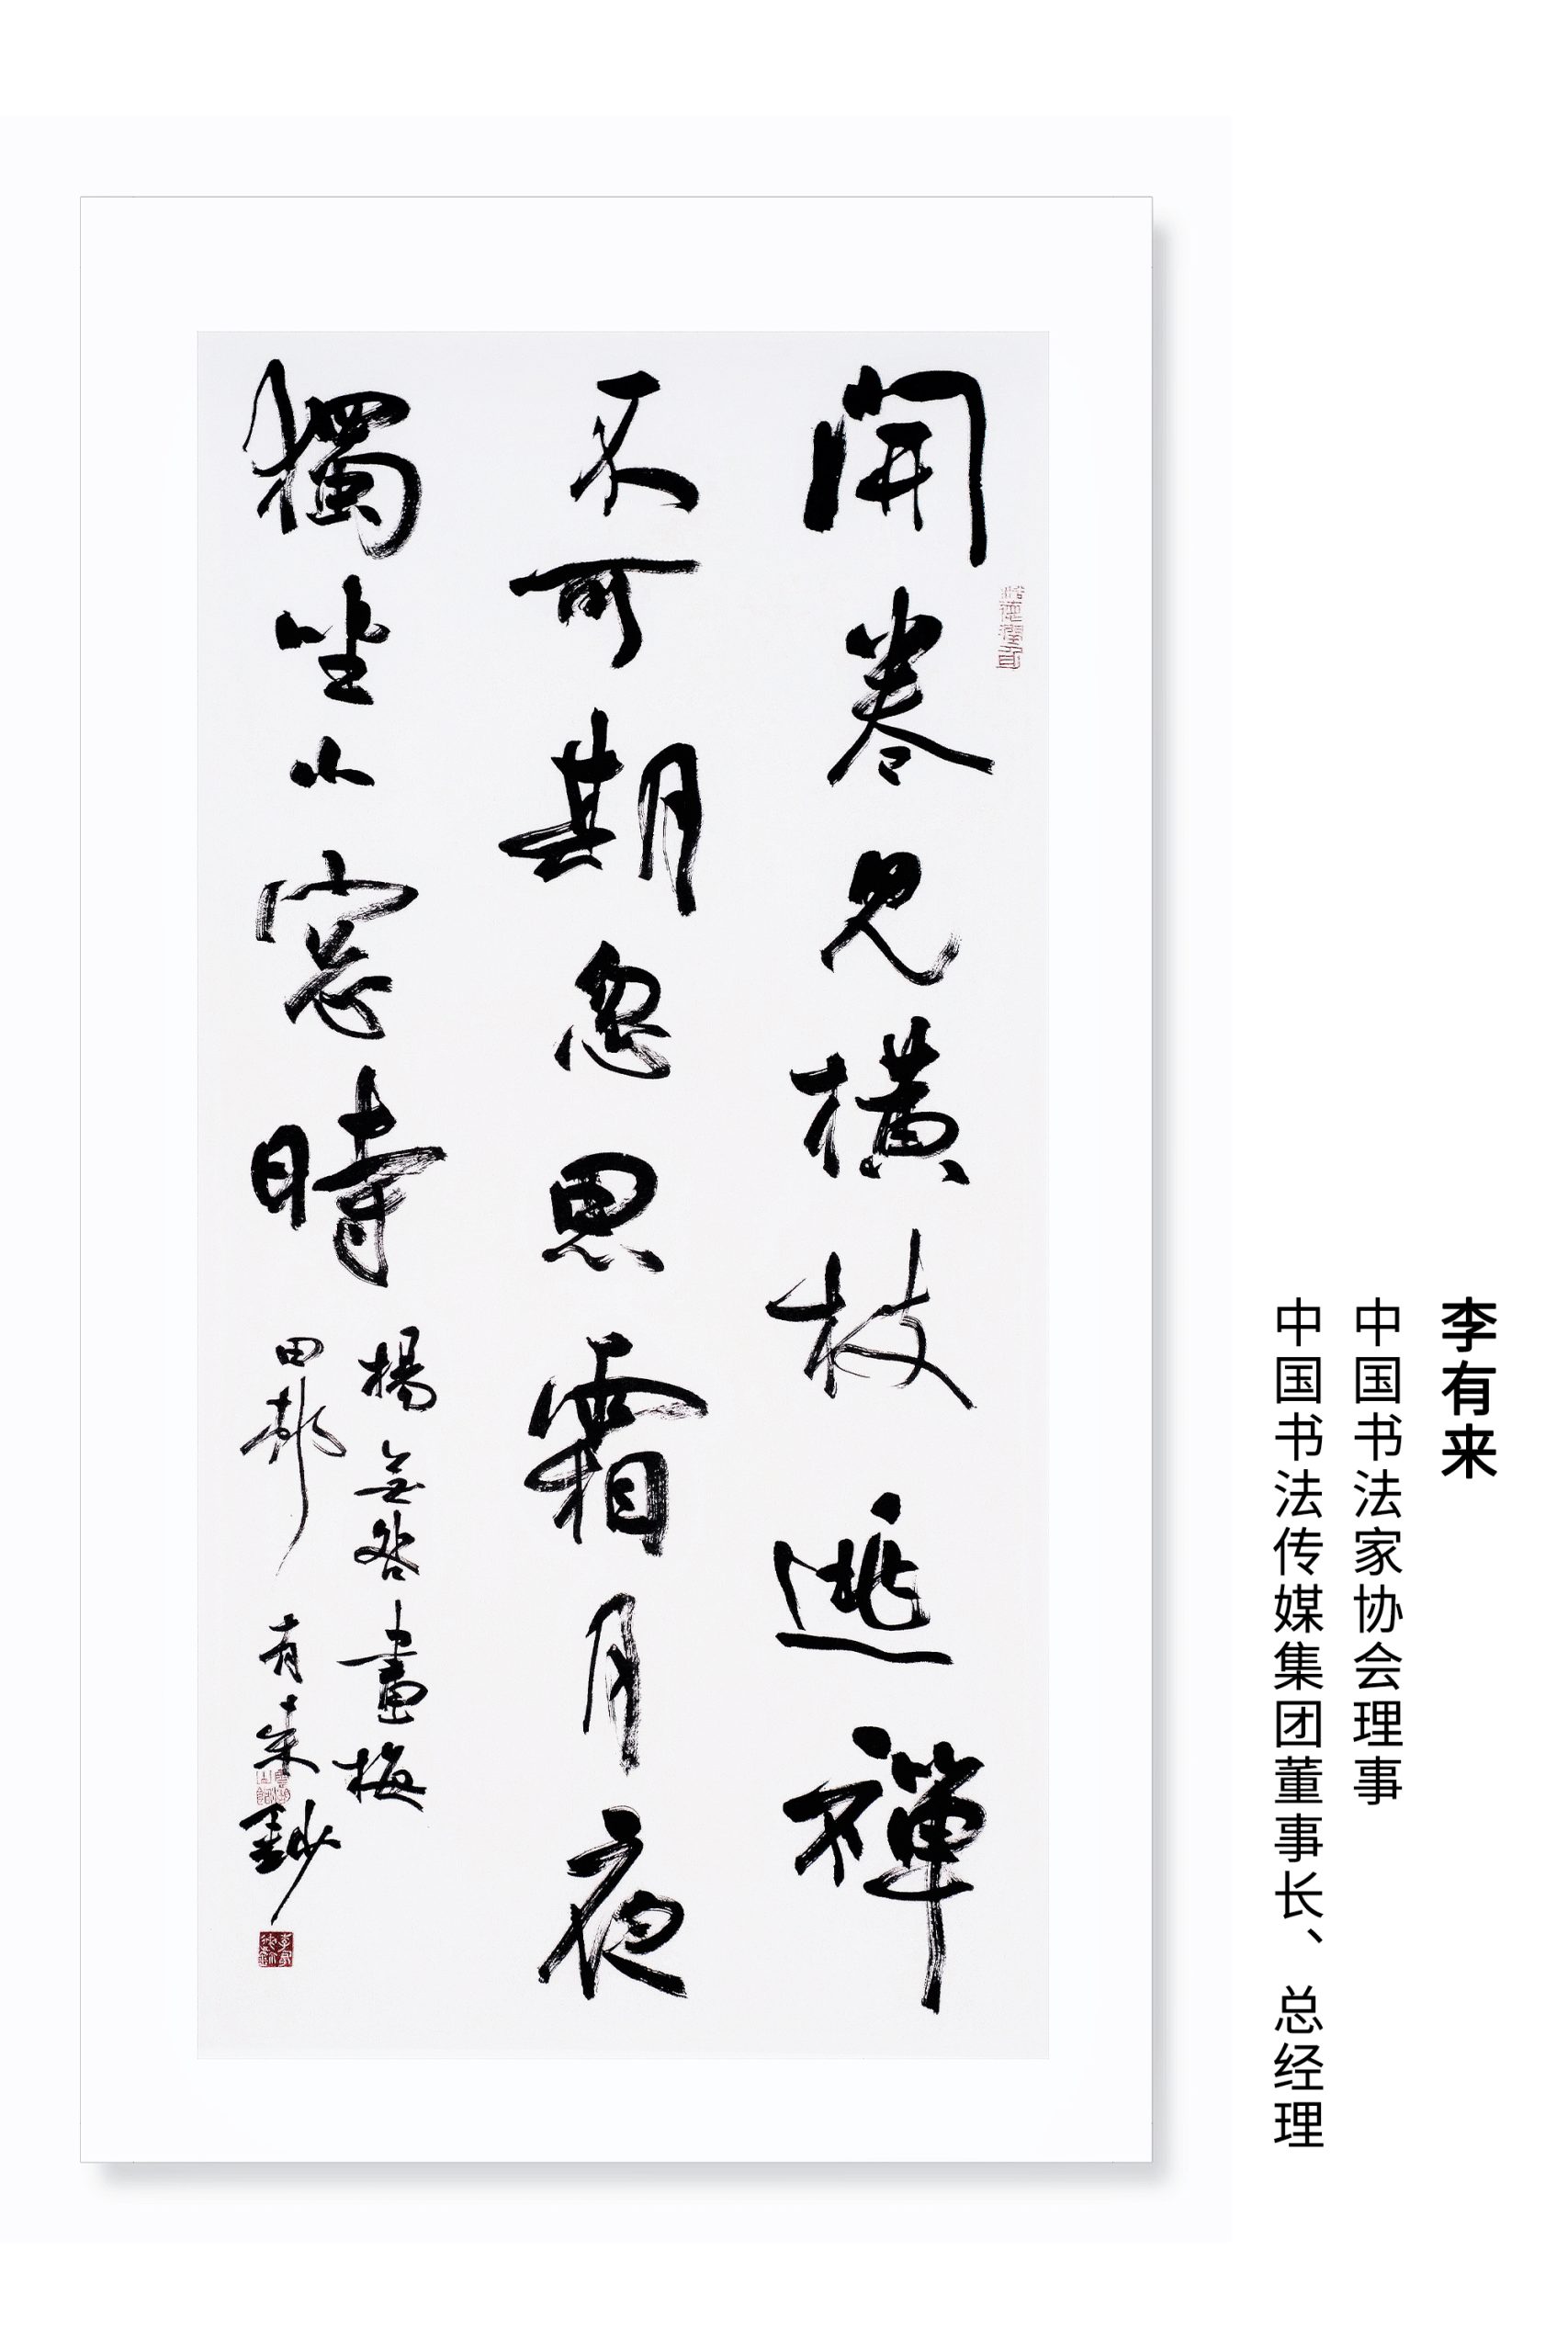 李有来
中国书法家协会理事
中国书法传媒集团董事长、总经理
開卷見橫枝逃禪
不可期忽思霜月夜
獨坐小窓時
楊無咎畫梅
田郵 有來鈔